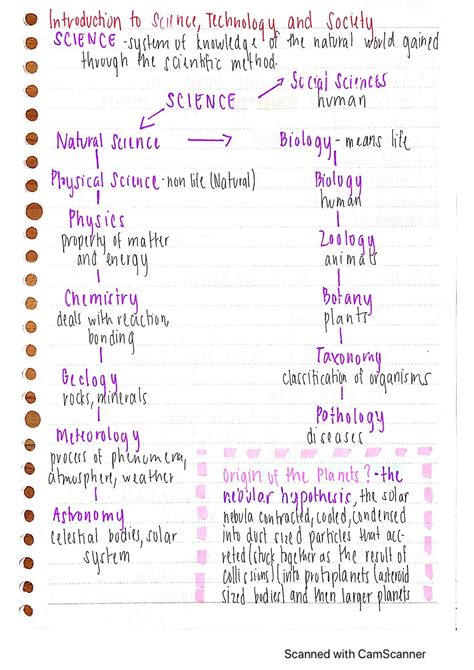 Introduction to Science, Technology and Society
SCIENCE - system of knowledge of the natural world gained
through the scientific method.
SCIENCE
Social Sciences
human
Natural Science
Biology - means life
Physical Science - non life (Natural)
Biology
human
Physics
property of matter
and energy
Zoology
animals
Chemistry
deals with reaction,
bonding
Botany
plants
Taxonomy
classification of organisms
Geology
rocks, minerals
Pathology
diseases
Meteorology
process of phenomena,
atmosphere, weather
Astronomy
celestial bodies, solar
system
Origin of the Planets? - the
nebular hypothesis, the solar
nebula contracted, cooled, condensed
into dust sized particles that acc-
reted (stuck together as the result of
collissions) (into protoplanets (asteroid
sized bodies) and then larger planets
Scanned with CamScanner